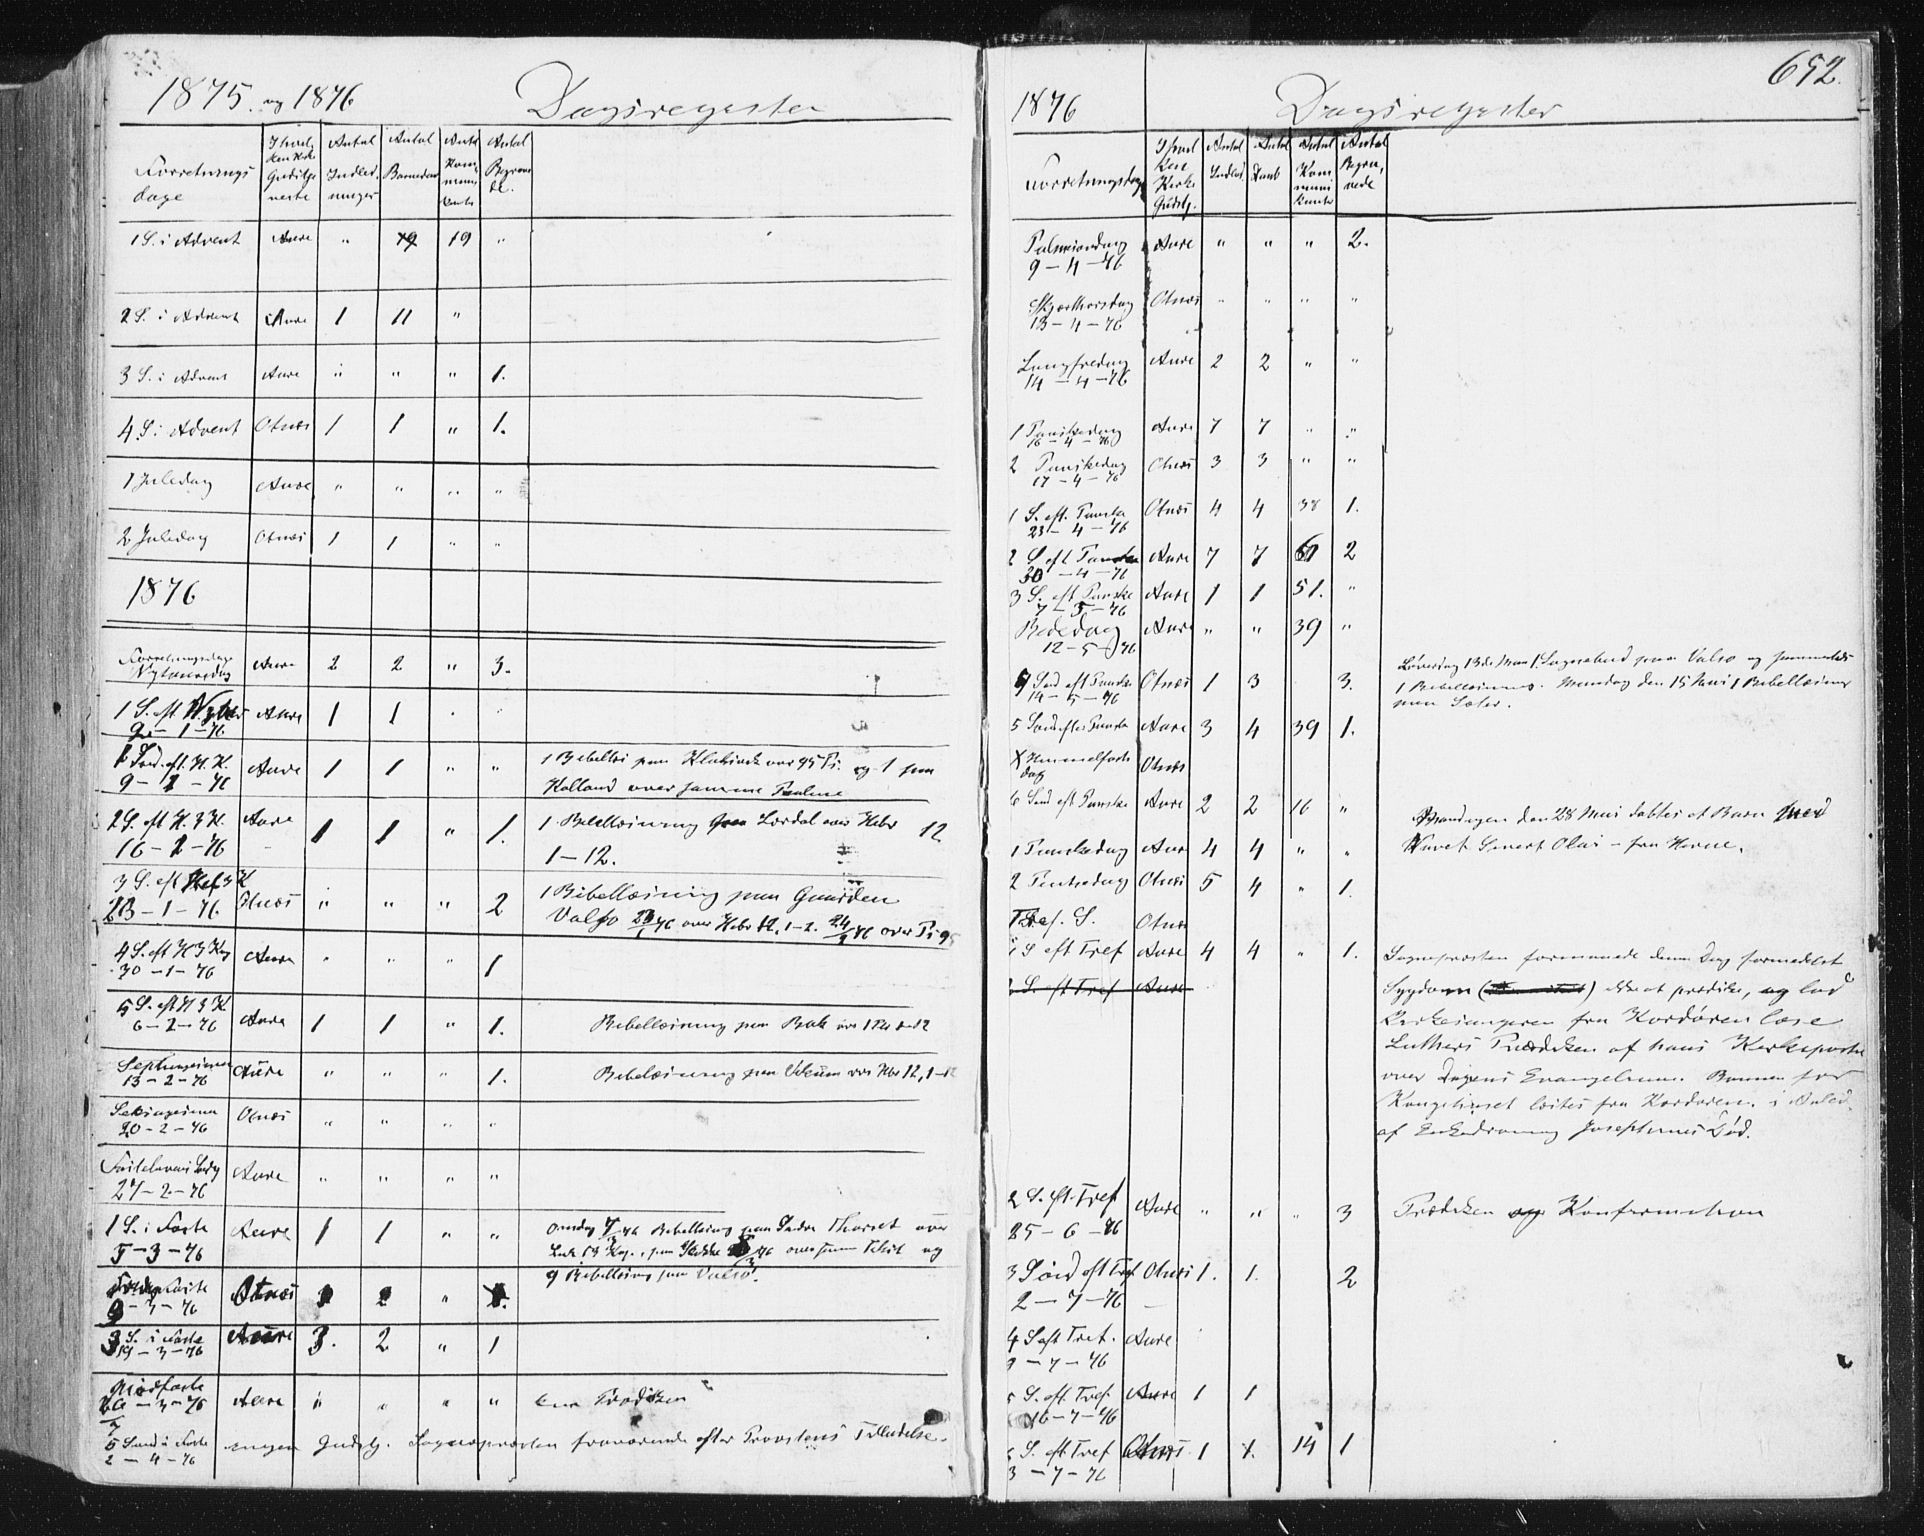 1875. og 1876 Dagsregister
Forretnings dage | I hvilken Kirke Gudstjeneste | Antal Indledninger | Antal Barnedaab | Antal Kommunikanter | Antal Begravede.
1 S. i Advent Aure " 19 19 "
2 S. i Advent Aure 1 11 "
3 S. i Advent Aure " " " 1.
4 S. i Advent Otnes 1 1 " 1.
1 Juledag Aure " " " "
2 Juledag Otnes 1 1 " "
1876
Forretningsdage
Nytaarsdag Aure 2 2 " 3.
1 S. eft Nytaar Aure 1 1
2 - 1 - 76
1 Sød. eft. H. 3 K. Aure 1 1 " " 1 Bibellæs. paa
9 - 1 - 76 over samme
2 S. eft H. 3 K. Aure 1 1 " 1. 1 Bibellæsning Lørdal over Hebr 12
16 - 1 - 76 1-12.
3 S. eft Hel 3 K Otnes " " " 2 1 Bibellæsning paa Gaarden
23 - 1 - 76 Valsø 23/1 76 over Hebr 12, 1-2. 24/1 76 over Ps 95
4 S. eft H 3 Kg Aure " " " 1
30 - 1 - 76
5 S. eft H 3 K Aure 1 1 " 1. Bibellæsning paa
6 - 2 - 76
Septuagesima Aure " " " 1. Bibelæsning paa over Hbr 12, 1-12
13 - 2 - 76
Sexagesima Otnes " " " "
20 - 2 - 76
Fastelavns Sndg Aure " " " "
27 - 2 - 76
1 S. i Faste Aure 1 1 " " Onsdag Bibellæsning paa Thorset over
5 - 3 - 76 Luk Kap. paa og
Otnes 2 " 9 Bibellæsning paa Valsø.
- 3 - 76
3 S. i Faste Aure 3. 2 " 1
19 - 3 - 76
Midfaste Aure " " " " kun Prædiken
26 - 3 - 76
5 Sønd i Faste ingen Gudstj. Sognepræsten fraværende efter Provstens Tilladelse.
2 - 4 - 76
652.
1876 Dagsregister
Forretningsdage | I hvilken Kirke Gudstj. | Antal Indled. | Antal Daab | Antal Kommunikanter | Antal Begravede
Palmesøndag Aure " " " 2.
9 - 4 - 76
Skjærthorsdag Otnes " " " "
13 - 4 - 76
Langfredag Aure 2 2 " "
14 - 4 - 76
1 Paaskedag Aure 7 7 " "
16 - 4 - 76
2 Paaskedag Otnes 3 3 " "
17 - 4 - 76
1 S. eft. Paaske Otnes 4 4 38 1.
23 - 4 - 76
2 S eft Paaske Aure 7 7 61 2
30 - 4 - 76
3 S. eft Paaske Aure 1 1 51. "
7 - 5 - 76
Bededag Aure " " 39 "
12 - 5 - 76
Løverdag 13de Mai 1 Sognebud paa Valsø og sammesteds
4 Sød eft Paaske Otnes 1 3 3. 1 Bibellæsning. Mandag den 15 Mai 1 Bibellæsning
14 - 5 - 76 paa Sæter.
5 Sønd efter Paaske Aure 3 4 39 1.
Himmelfarts Otnes
dag
6 Sød eft Paaske Aure 2 2 16 "
den 28 Mai døbtes et Barn med
1 Pintsedag Aure 4 4 " " Navet Sivert Olai - fra Hevne.
2 Pintsedag Otnes 5 4 " 1.
Tref. S. Otnes
1 S eft Tref Aure 4 4 " 1. Sognepræsten formaaede denne Dag formedelst
2 S. eft Tref Aure Sygdom () ikke at prædike, og lod
Kirkesangeren fra Kordøren læse
Luthers Prædiken af hans Kirkepostil
over Dagens Evangelium. Bønnen for
Kongehuset læstes fra Kordøren i Anled.
af Enkedronning Josephines Død.
2 S. eft. Tref Aure " " " 3 Prædiken og Konfirmation
25 - 6 - 76
3 Sønd eft Tref Otnes 1. 1. 2
2 - 7 - 76
4 S eft Tref. Aure
9 - 7 - 76
5 S. eft. Tref. Aure 1 1
16 - 7 - 76
6 S. eft Tref Otnes 1 1. 14 1
3 - 7 - 76